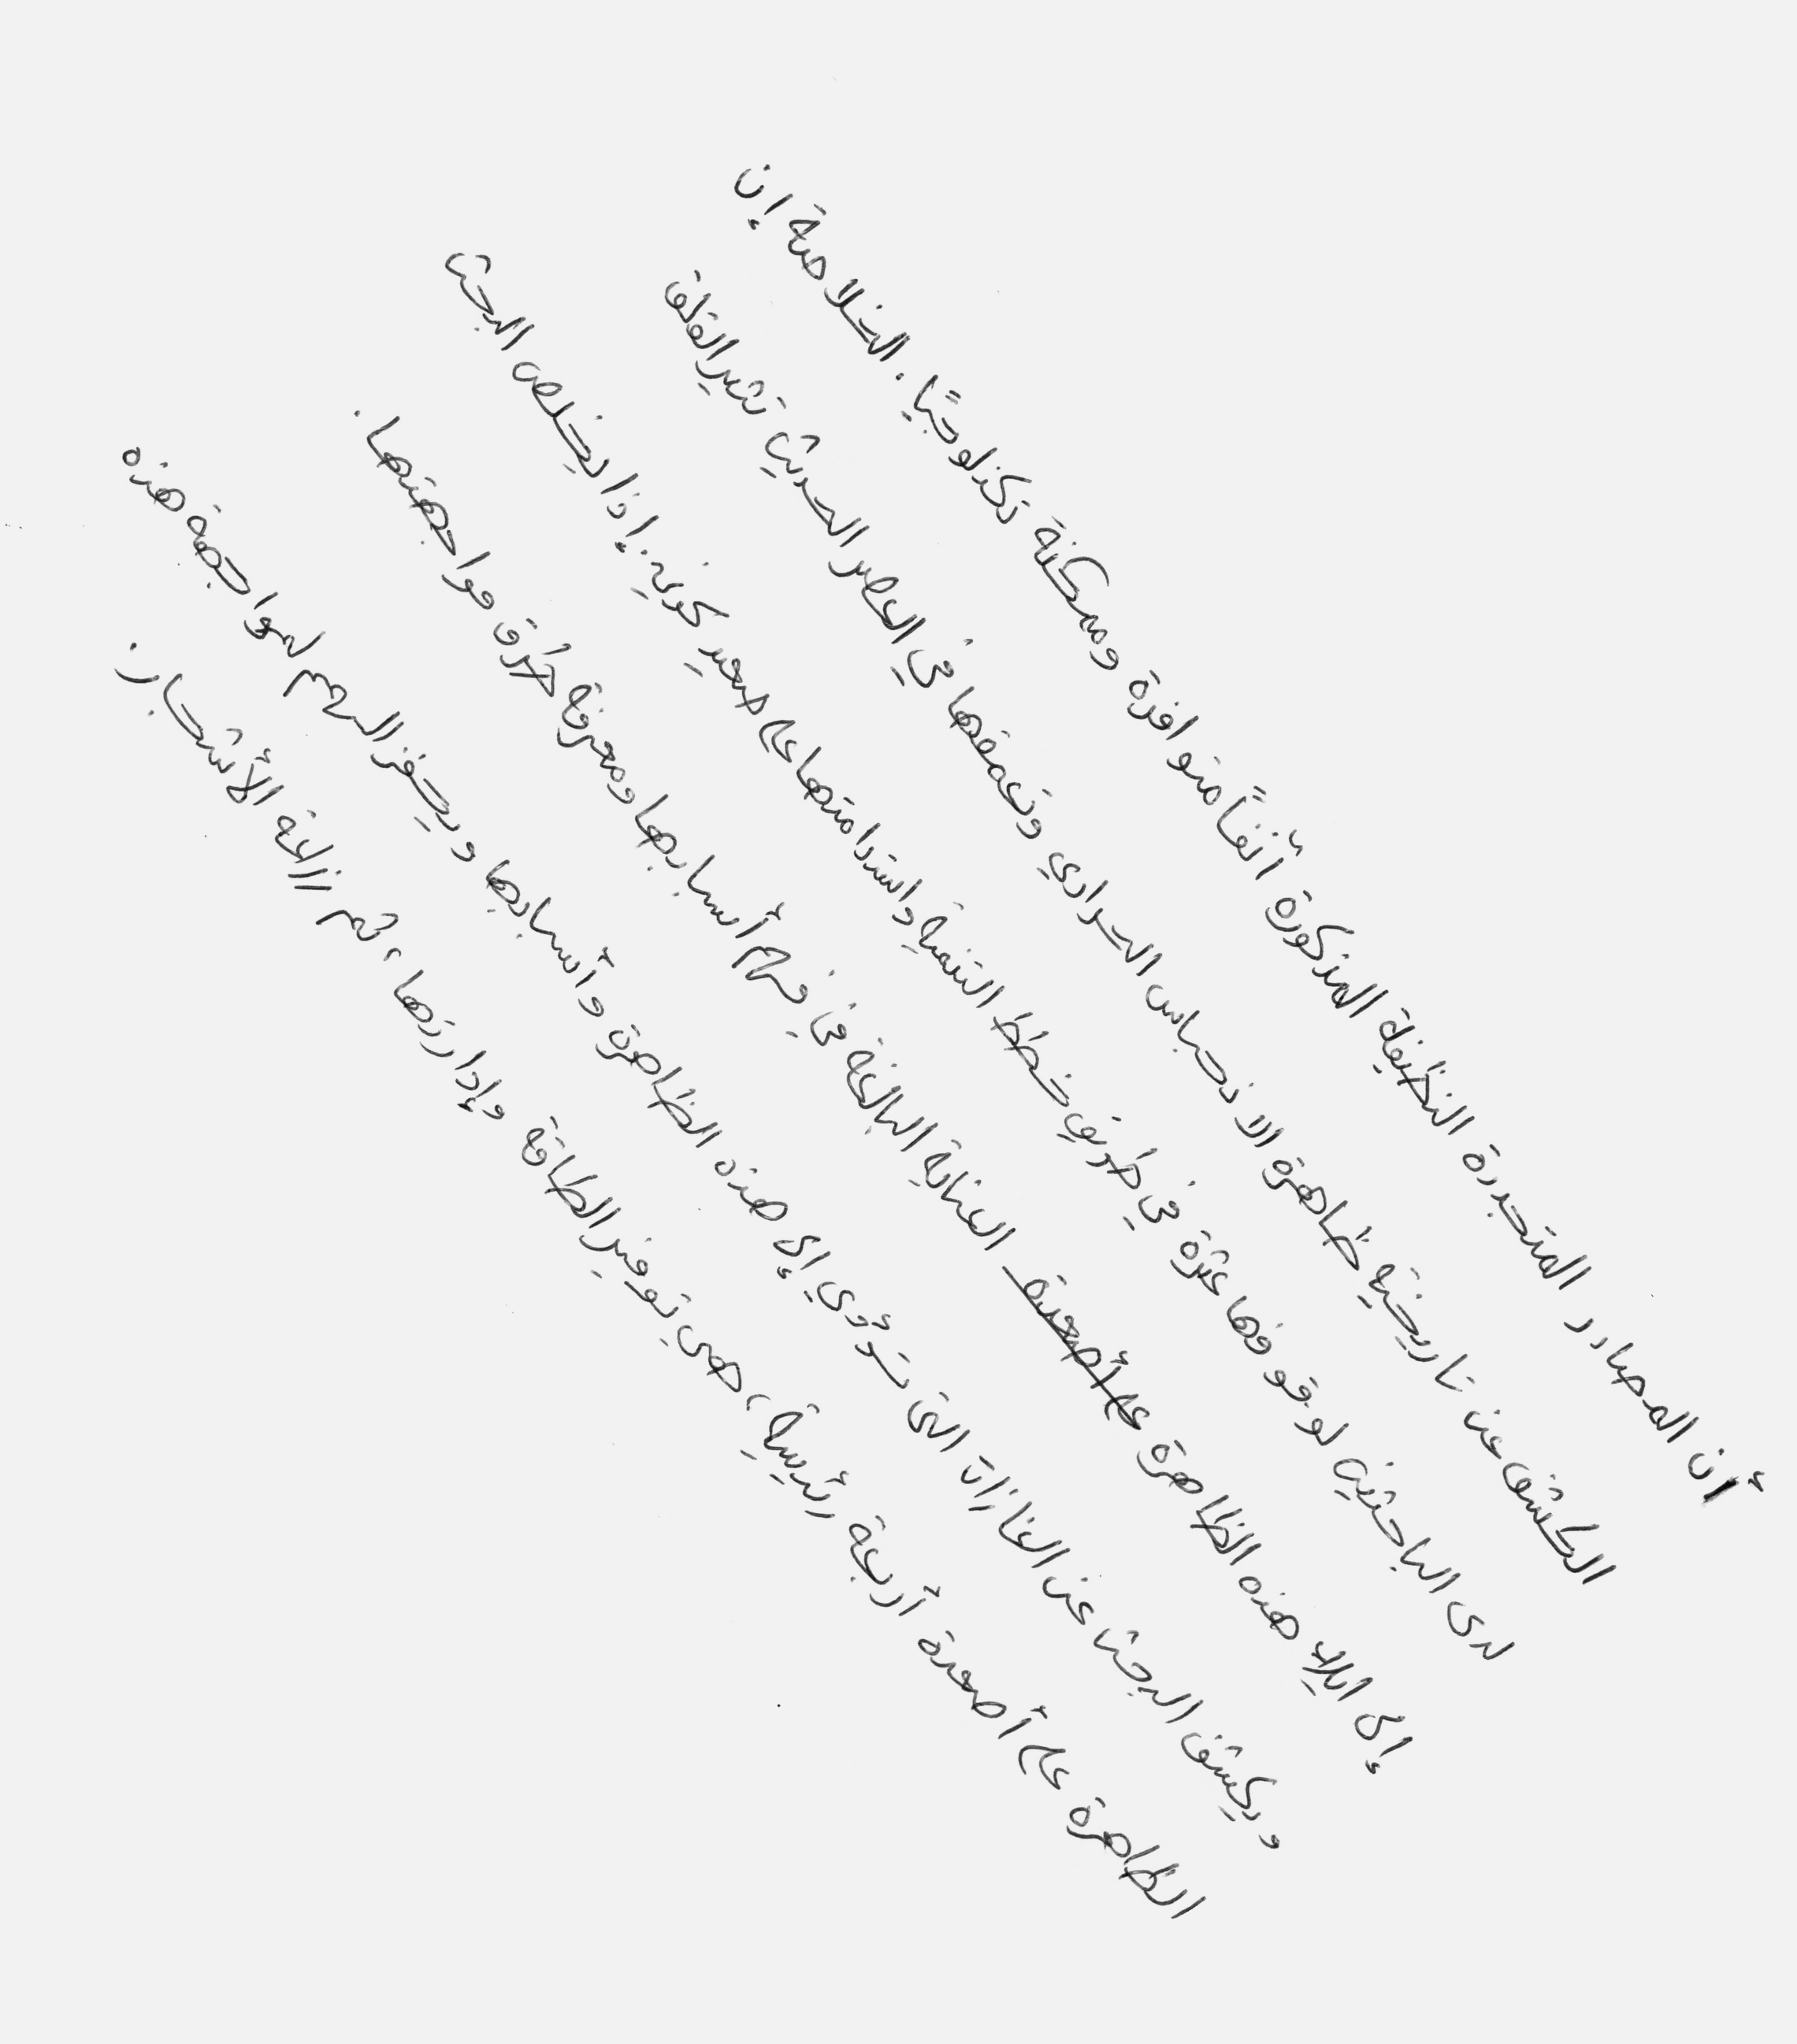 أن المصادر المتجددة النظيفة المذكورة آنفاً متوافرة وممكنة تكنلوجيًا. الخلاصة إن
الكشف عن تاريخية ظاهرة الاحتباس الحراري وتعمقها في العصر الحديث تثير القلق
لدى الباحثين لوقوفها عثرة في طريق خطط التنمية واستدامتها على صعيد كوني. إذا يخلص البحث
إلى إيلاء هذه الظاهرة على أصعدة العناية البالغة في فهم أسبابها ومعرفة طُرق مواجهتها.
ويكشف البحث عن الغازات التي تؤدي إلى هذه الظاهرة وأسبابها ويحفز الهمم لمواجهة هذه
الظاهرة على أصعدة أربعة رئيسية، هي توفير الطاقة وإدارتها، ثم زراعة الأشجار.